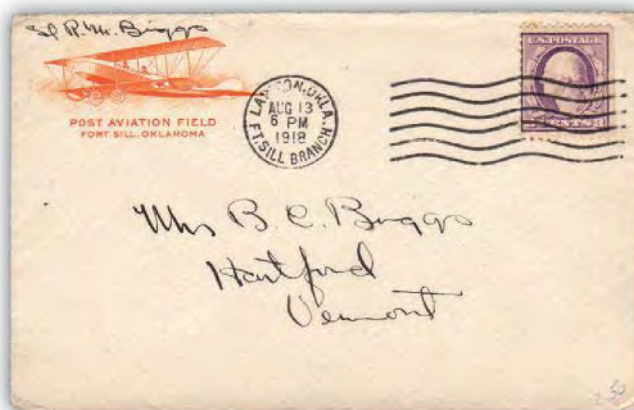 R. M. Biggs
POST AVIATION FIELD
FORT SILL, OKLAHOMA
LAWTON, OKLA.
AUG 13
6 PM
1918
FT. SILL BRANCH
U.S. POSTAGE
CENTS 3
Mrs B. C. Biggs
Hartford
Vermont